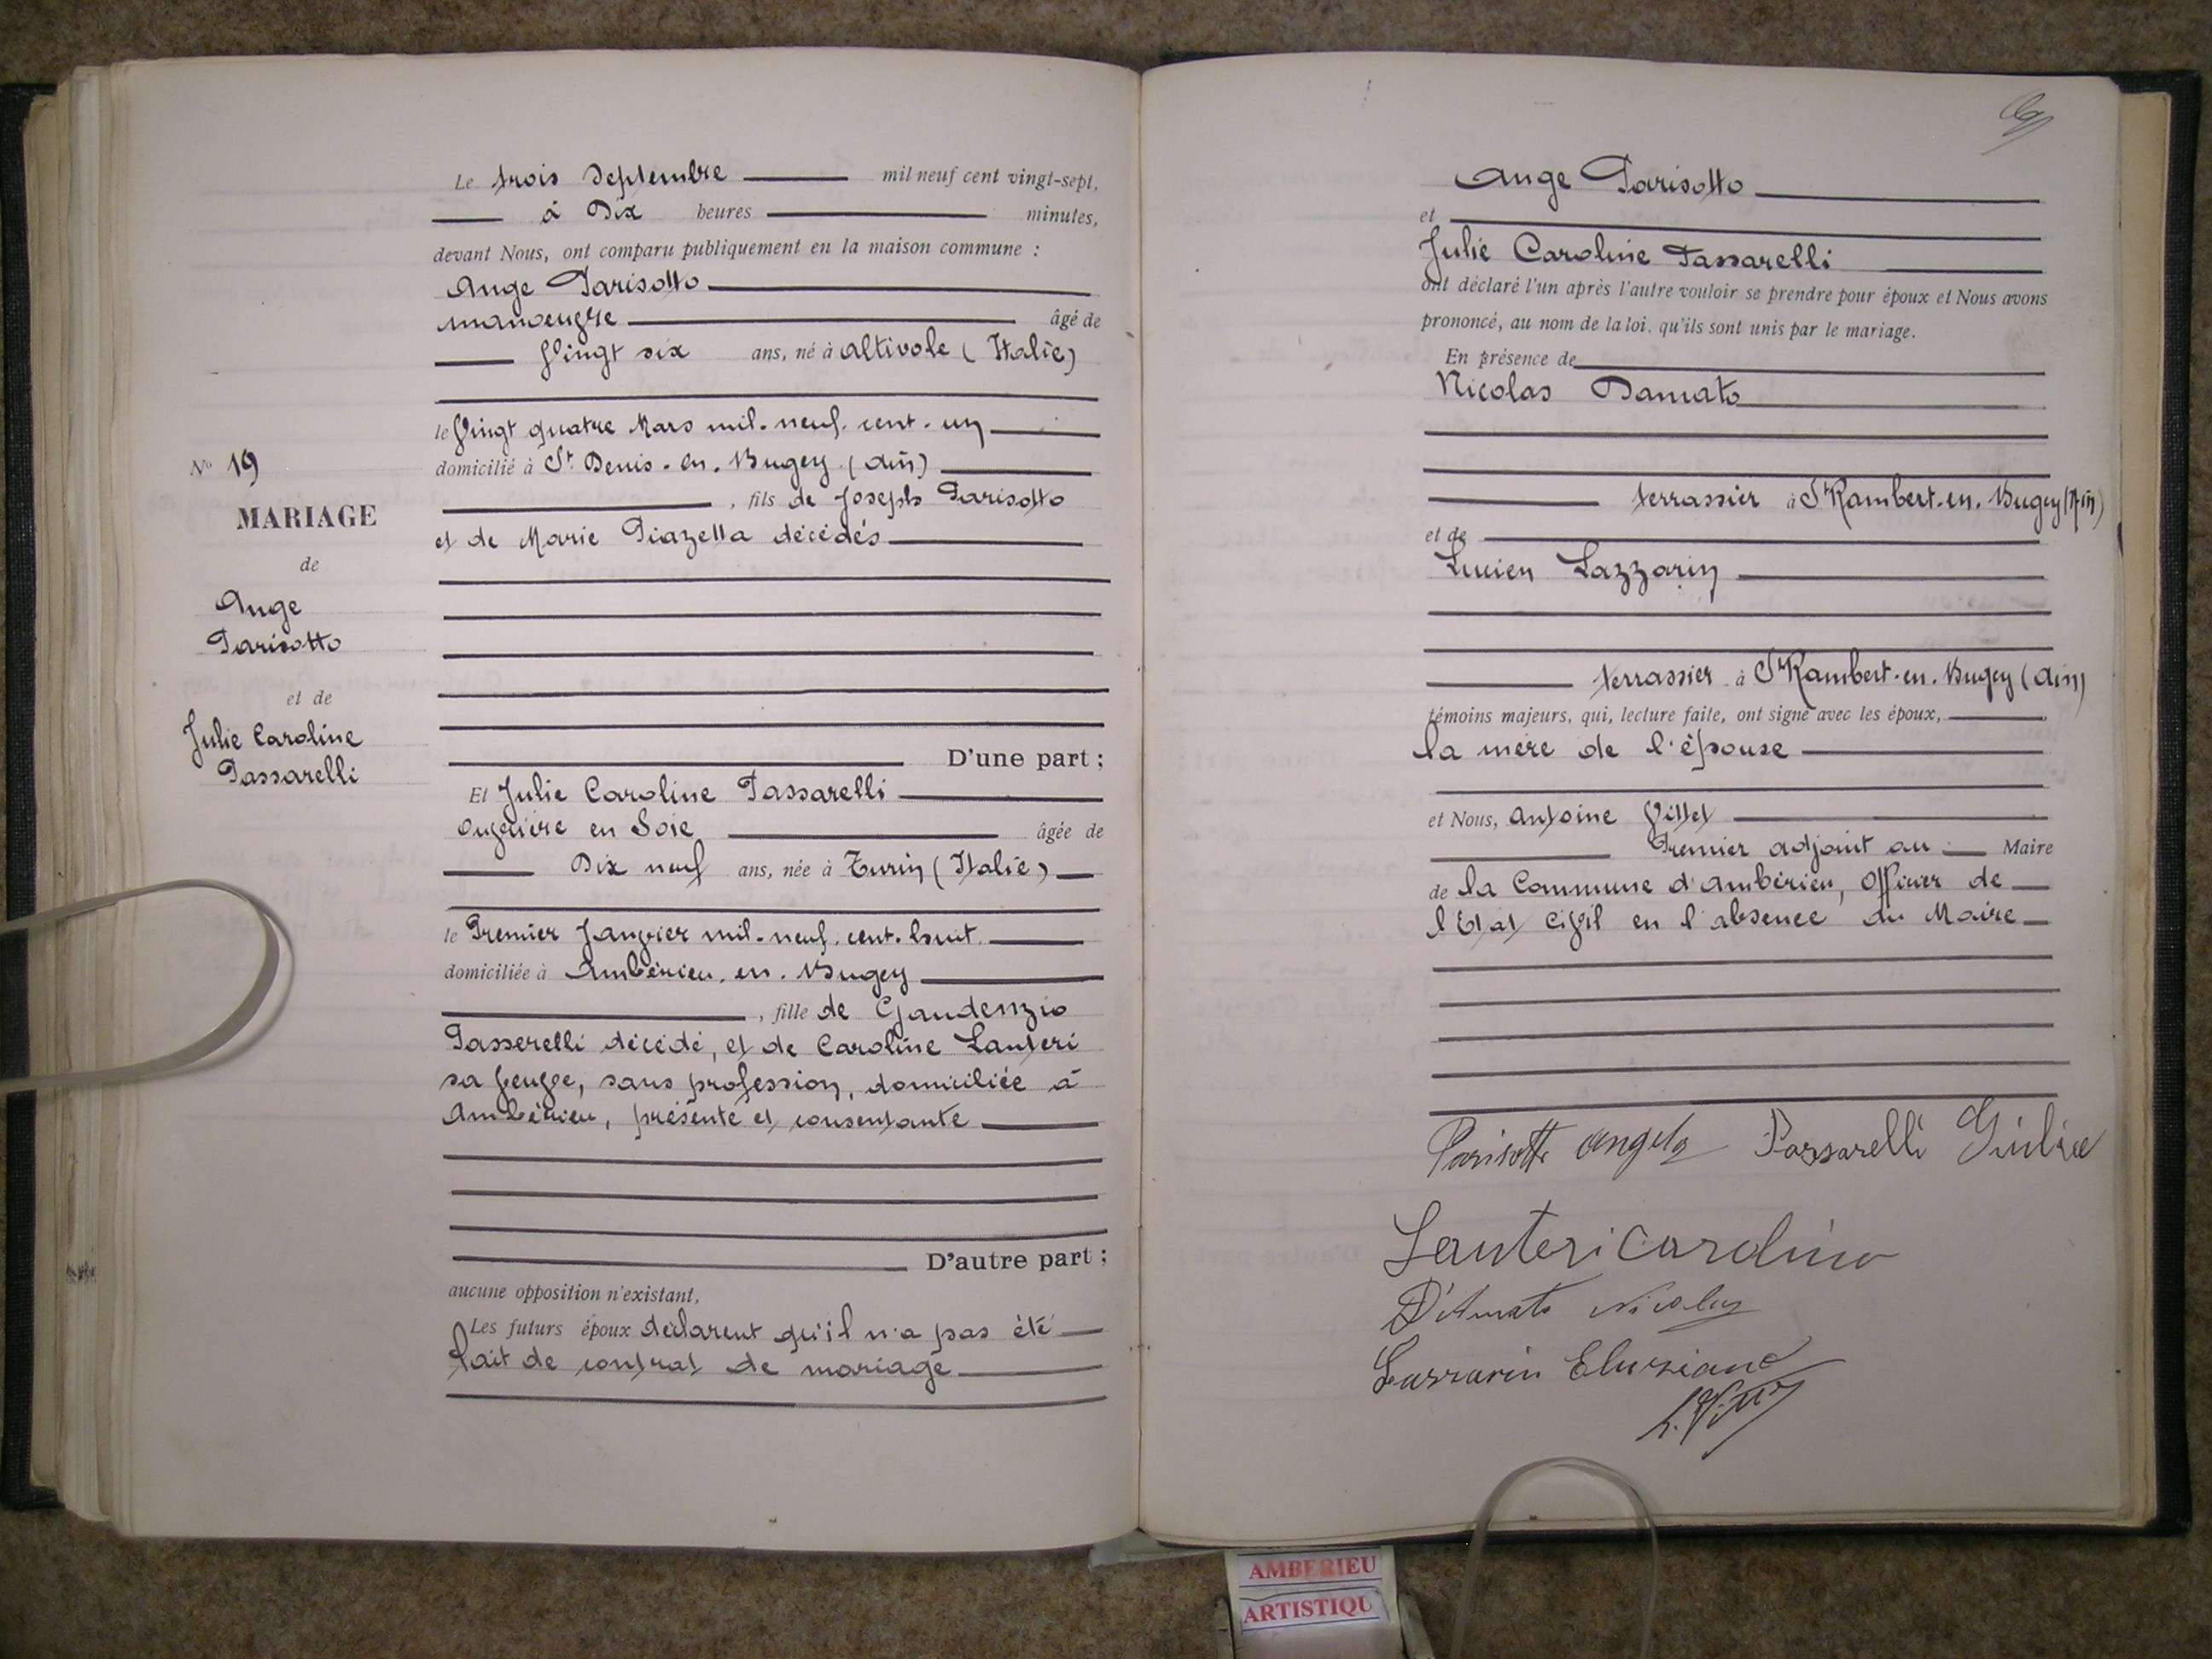 Le trois Septembre mil neuf cent vingt-sept,
à Dix heures minutes,
devant Nous, ont comparu publiquement en la maison commune :
Ange Parisotto
manoeuvre âgé de
Vingt six ans, né à Altivole (Italie)
le Vingt quatre Mars mil-neuf-cent-un
domicilié à St Denis-en-Bugey (Ain)
, fils de Joseph Parisotto
et de Marie Piazetta décédés
No 19
MARIAGE
de
Ange
Parisotto
et de
Julie Caroline
Passarelli
D'une part ;
Et Julie Caroline Passarelli
Ouvrière en Soie âgée de
Dix neuf ans, née à Turin (Italie)
le Premier Janvier mil-neuf-cent-huit
domiciliée à Ambérieu-en-Bugey
, fille de Gaudenzio
Passerelli décédé, et de Caroline Lanteri
sa veuve, sans profession, domiciliée à
Ambérieu, présente et consentante
D'autre part ;
aucune opposition n'existant,
Les futurs époux déclarent qu'il n'a pas été
fait de contrat de mariage
Ange Parisotto
et
Julie Caroline Passarelli
ont déclaré l'un après l'autre vouloir se prendre pour époux et Nous avons
prononcé, au nom de la loi, qu'ils sont unis par le mariage.
En présence de
Nicolas Damato
terrassier à St Rambert-en-Bugey (Ain)
et de
Lucien Lazzarin
terrassier à St Rambert-en-Bugey (Ain)
témoins majeurs, qui, lecture faite, ont signé avec les époux,
la mère de l'épouse
et Nous, Antoine Villet
Premier adjoint au Maire
de la Commune d'Ambérieu, Officier de
l'Etat Civil en l'absence du Maire
Parisotto Angelo Passarelli Giulia
Lanteri Carolina
D'Amato Nicolas
Lazzarin
AMBERIEU
ARTISTIQU